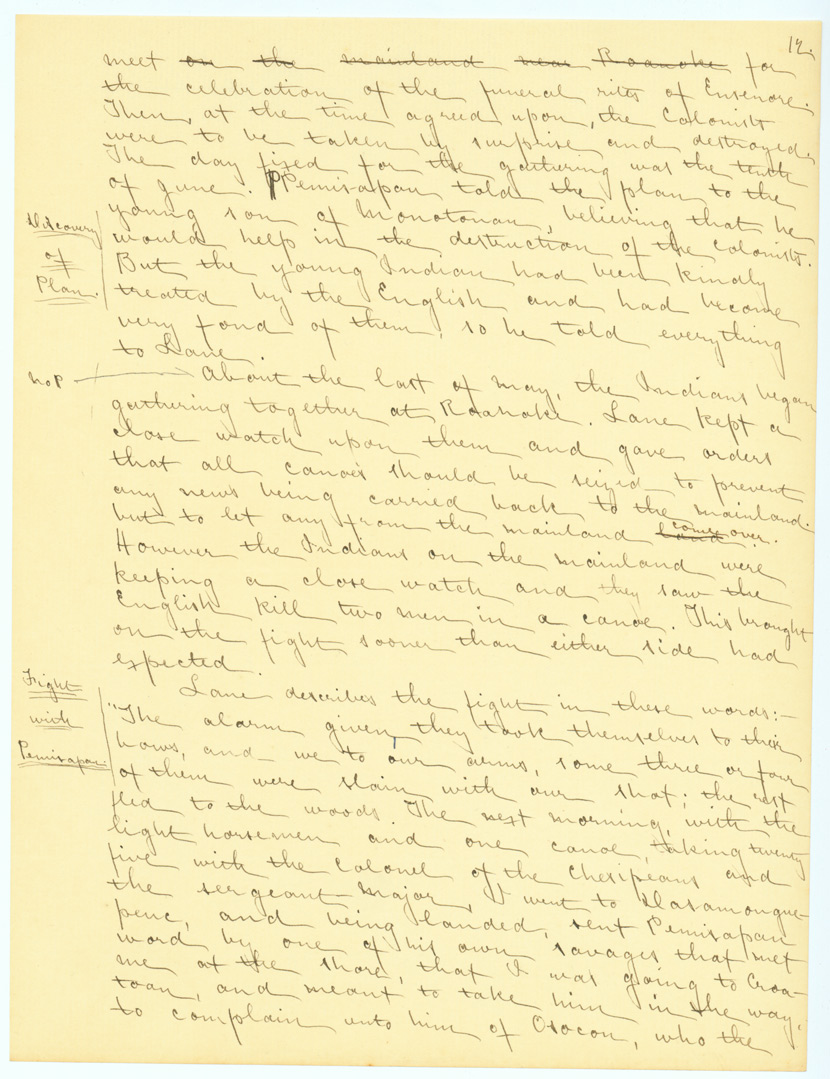 12.
meet on the mainland near Roanoke for
the celebration of the funeral rites of Ensenore.
Then, at the time agreed upon, the Colonists
were to be taken by surprise and destroyed.
The day fixed for the gathering was the tenth
of June. Pemisapan told the plan to the
young son of Monotonan, believing that he
would help in the destruction of the Colonists.
But the young Indian had been kindly
treated by the English and had become
very fond of them, so he told everything
to Lane.
Discovery
of
Plan.
No P
About the last of May, the Indians began
gathering together at Roanoke. Lane kept a
close watch upon them and gave orders
that all canoes should be seized to prevent
any news being carried back to the mainland.
but to let any from the mainland land come over.
However the Indians on the mainland were
keeping a close watch and they saw the
English kill two men in a canoe. This brought
on the fight sooner than either side had
expected.
Fight
with
Pemisapan.
Lane describes the fight in these words:-
"The alarm given, they took themselves to their
bows, and we to our arms, some three or four
of them were slain with our shot; the rest
fled to the woods. The next morning, with the
light horsemen and one canoe, taking twenty
five with the Colonel of the Chesipeans and
the sergeant-major, I went to Dasamongue-
penc, and being landed, sent Pemisapan
word by one of his own savages that met
me at the shore, that I was going to Croa-
toan, and meant to take him in the way,
to complain unto him of Osocon, who the